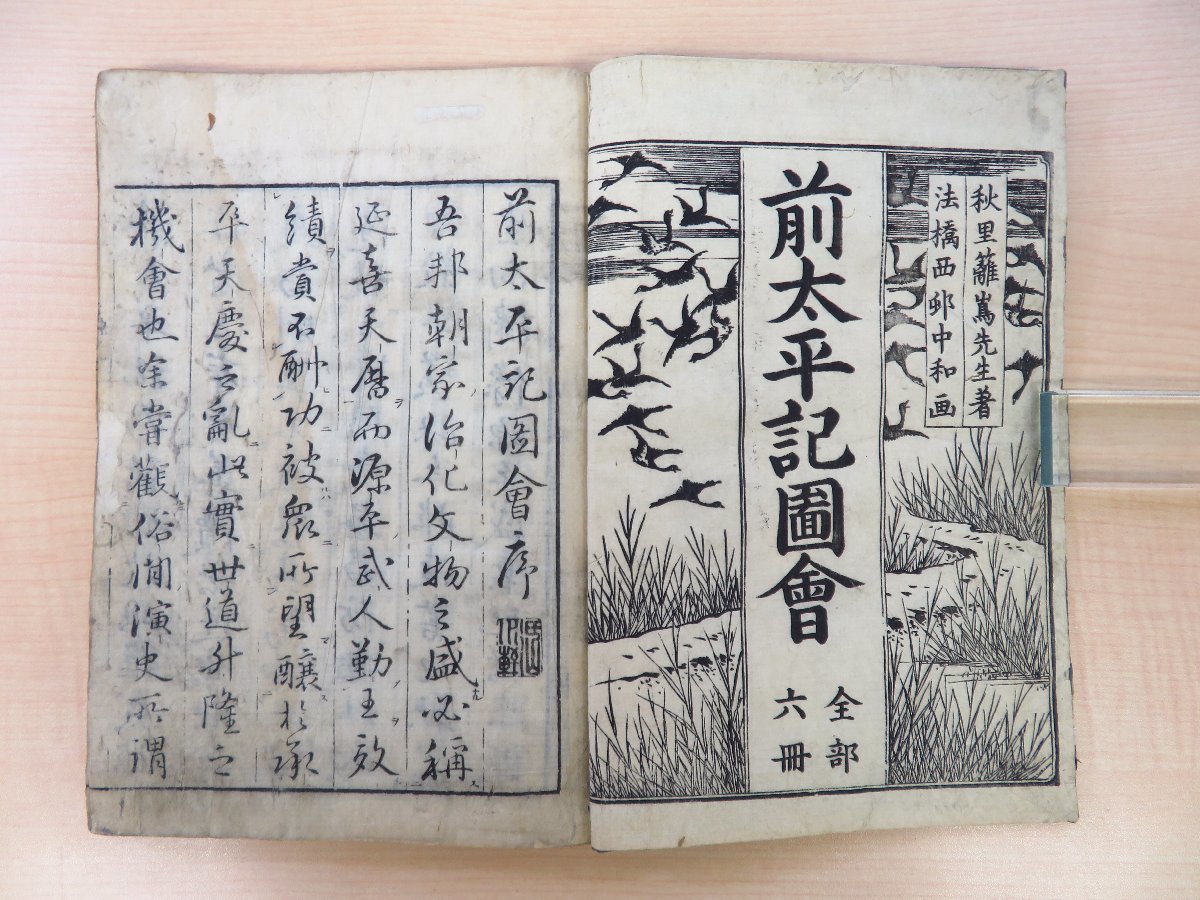 秋里蘺嶌先生著
法橋西邨中和画
前太平記圖會
全部
六冊
前太平記圖會序
吾邦朝家治化文物之盛必稱
延喜天曆而源平武人勤王效
績賞不酬功被衆所望釀於承
平天慶之亂此實世道升隆之
機會也余嘗觀俗間演史所謂